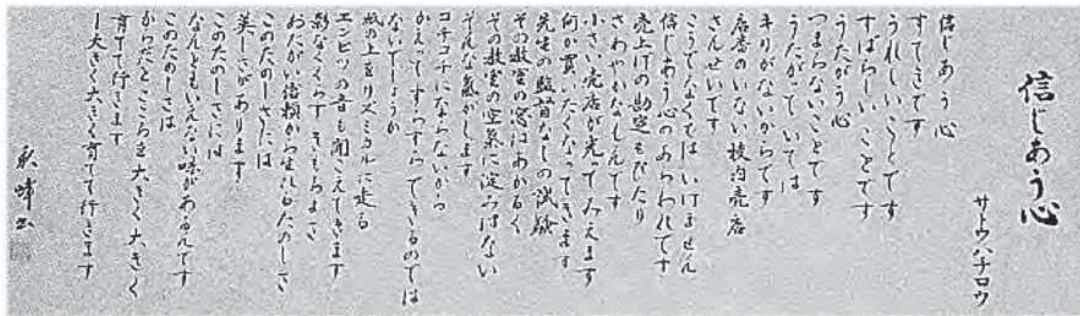 信じあう心
サトウハチロウ
信じあう心
すてきです
うれしいことです
すばらしいことです
うたがう心
つまらないことです
うたがっていては
キリがないからです
店番のいない校内売店
さんせいです
こうでなくてはいけません
信じあう心のあらわれです
売上げの勘定もぴたり
さわやかなしんです
小さい売店が光ってみえます
何か買いたくなってきます
先生の監督なしの試験
その教室の窓はあかるく
その教室の空気に淀みはない
そんな気がします
コチコチにならないから
かえってすらすらできるのでは
ないでしょうか
紙の上をリズミカルに走る
エンピツの音も聞こえてきます
影なくくらす きもちよさ
おたがい信頼から生れたたのしさ
このたのしさには
美しさがあります
このたのしさには
なんともいえない味があるんです
このたのしさは
からだとこころを大きく大きく
育てて行きます
ー大きく大きく育てて行きます